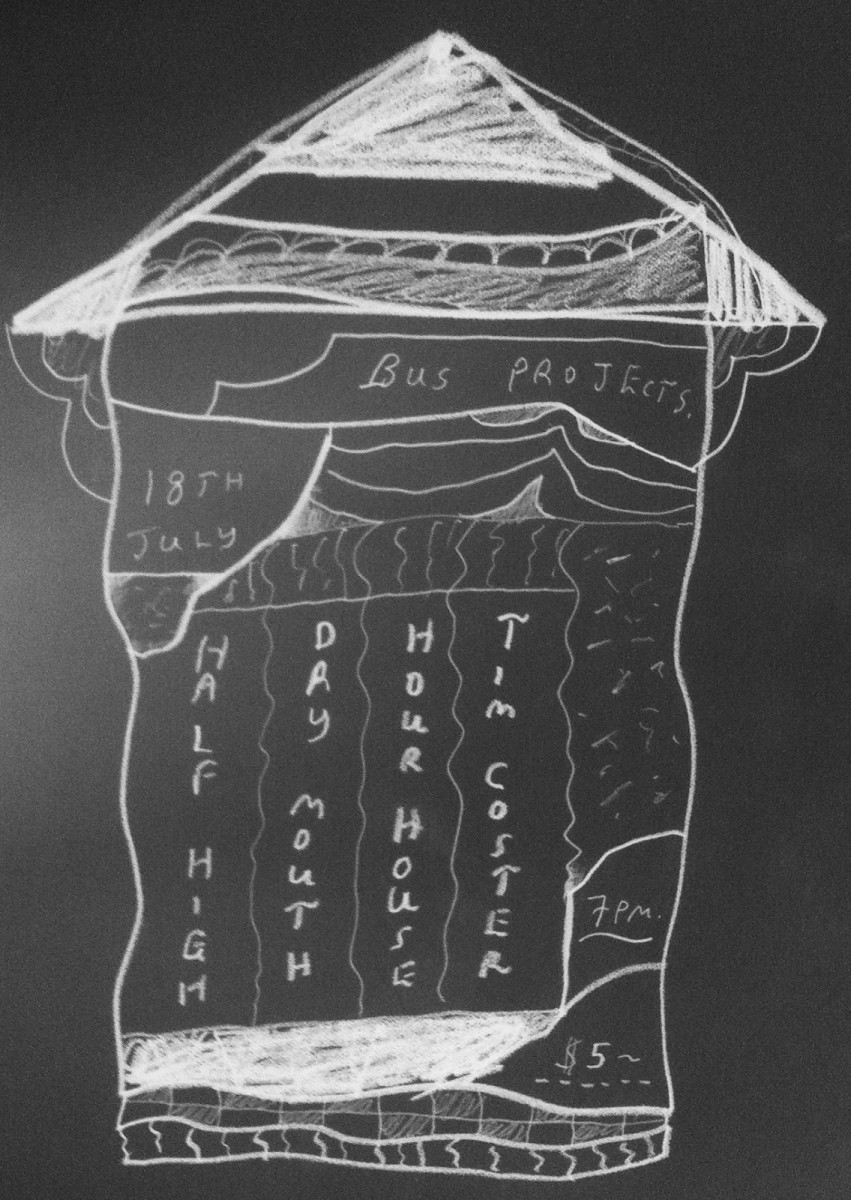 BUS PROJECTS.
18TH
JULY
HALF HIGH
DAY MOUTH
HOUR HOUSE
TIM COSTER
7PM.
$5~